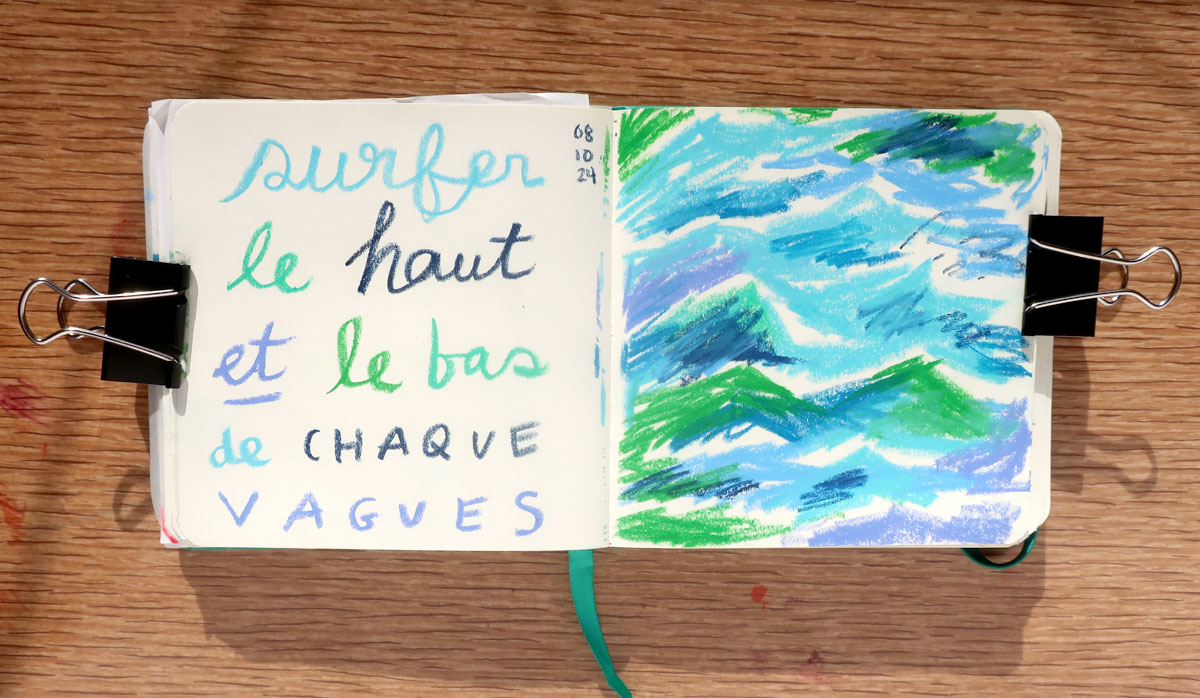 surfer
le haut
et le bas
de CHAQUE
VAGUES
08
10
24